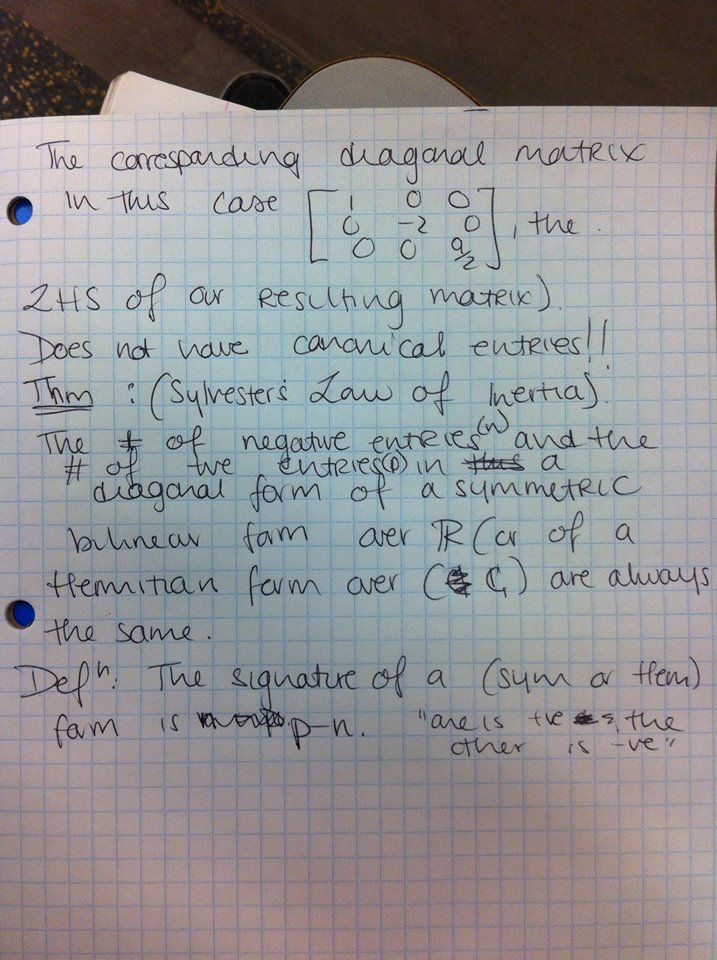 The corresponding diagonal matrix
in this case [ 1 0 0
0 -2 0
0 0 9/2 ], the
LHS of our resulting matrix).
Does not have canonical entries!!
Thm : (Sylvester's Law of Inertia).
The # of negative entries (n) and the
# of +ve entries (p) in a
diagonal form of a symmetric
bilinear form over ℝ (or of a
Hermitian form over ( ℂ) are always
the same.
Defⁿ: The signature of a (sym or Herm)
form is p-n. "one is +ve & the
other is -ve"